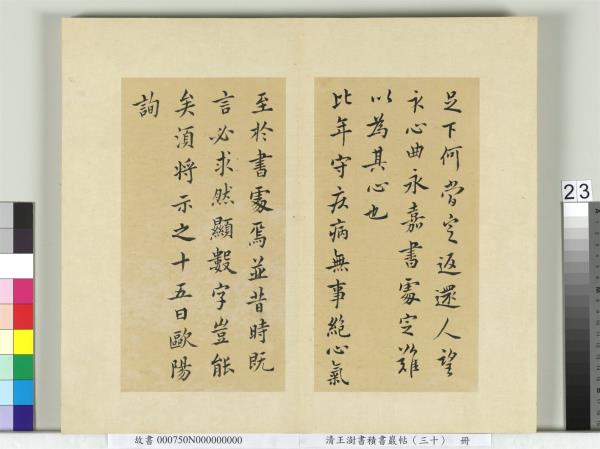 足下何當定返還人望
永心曲永嘉書處定難
以為其心也
比年守疾病無事絕心氣
至於書處焉並昔時既
言必求然顯數字豈能
矣須將示之十五日歐陽
詢
23
故書 000750N000000000
清王澍書積書巖帖（三十） 冊